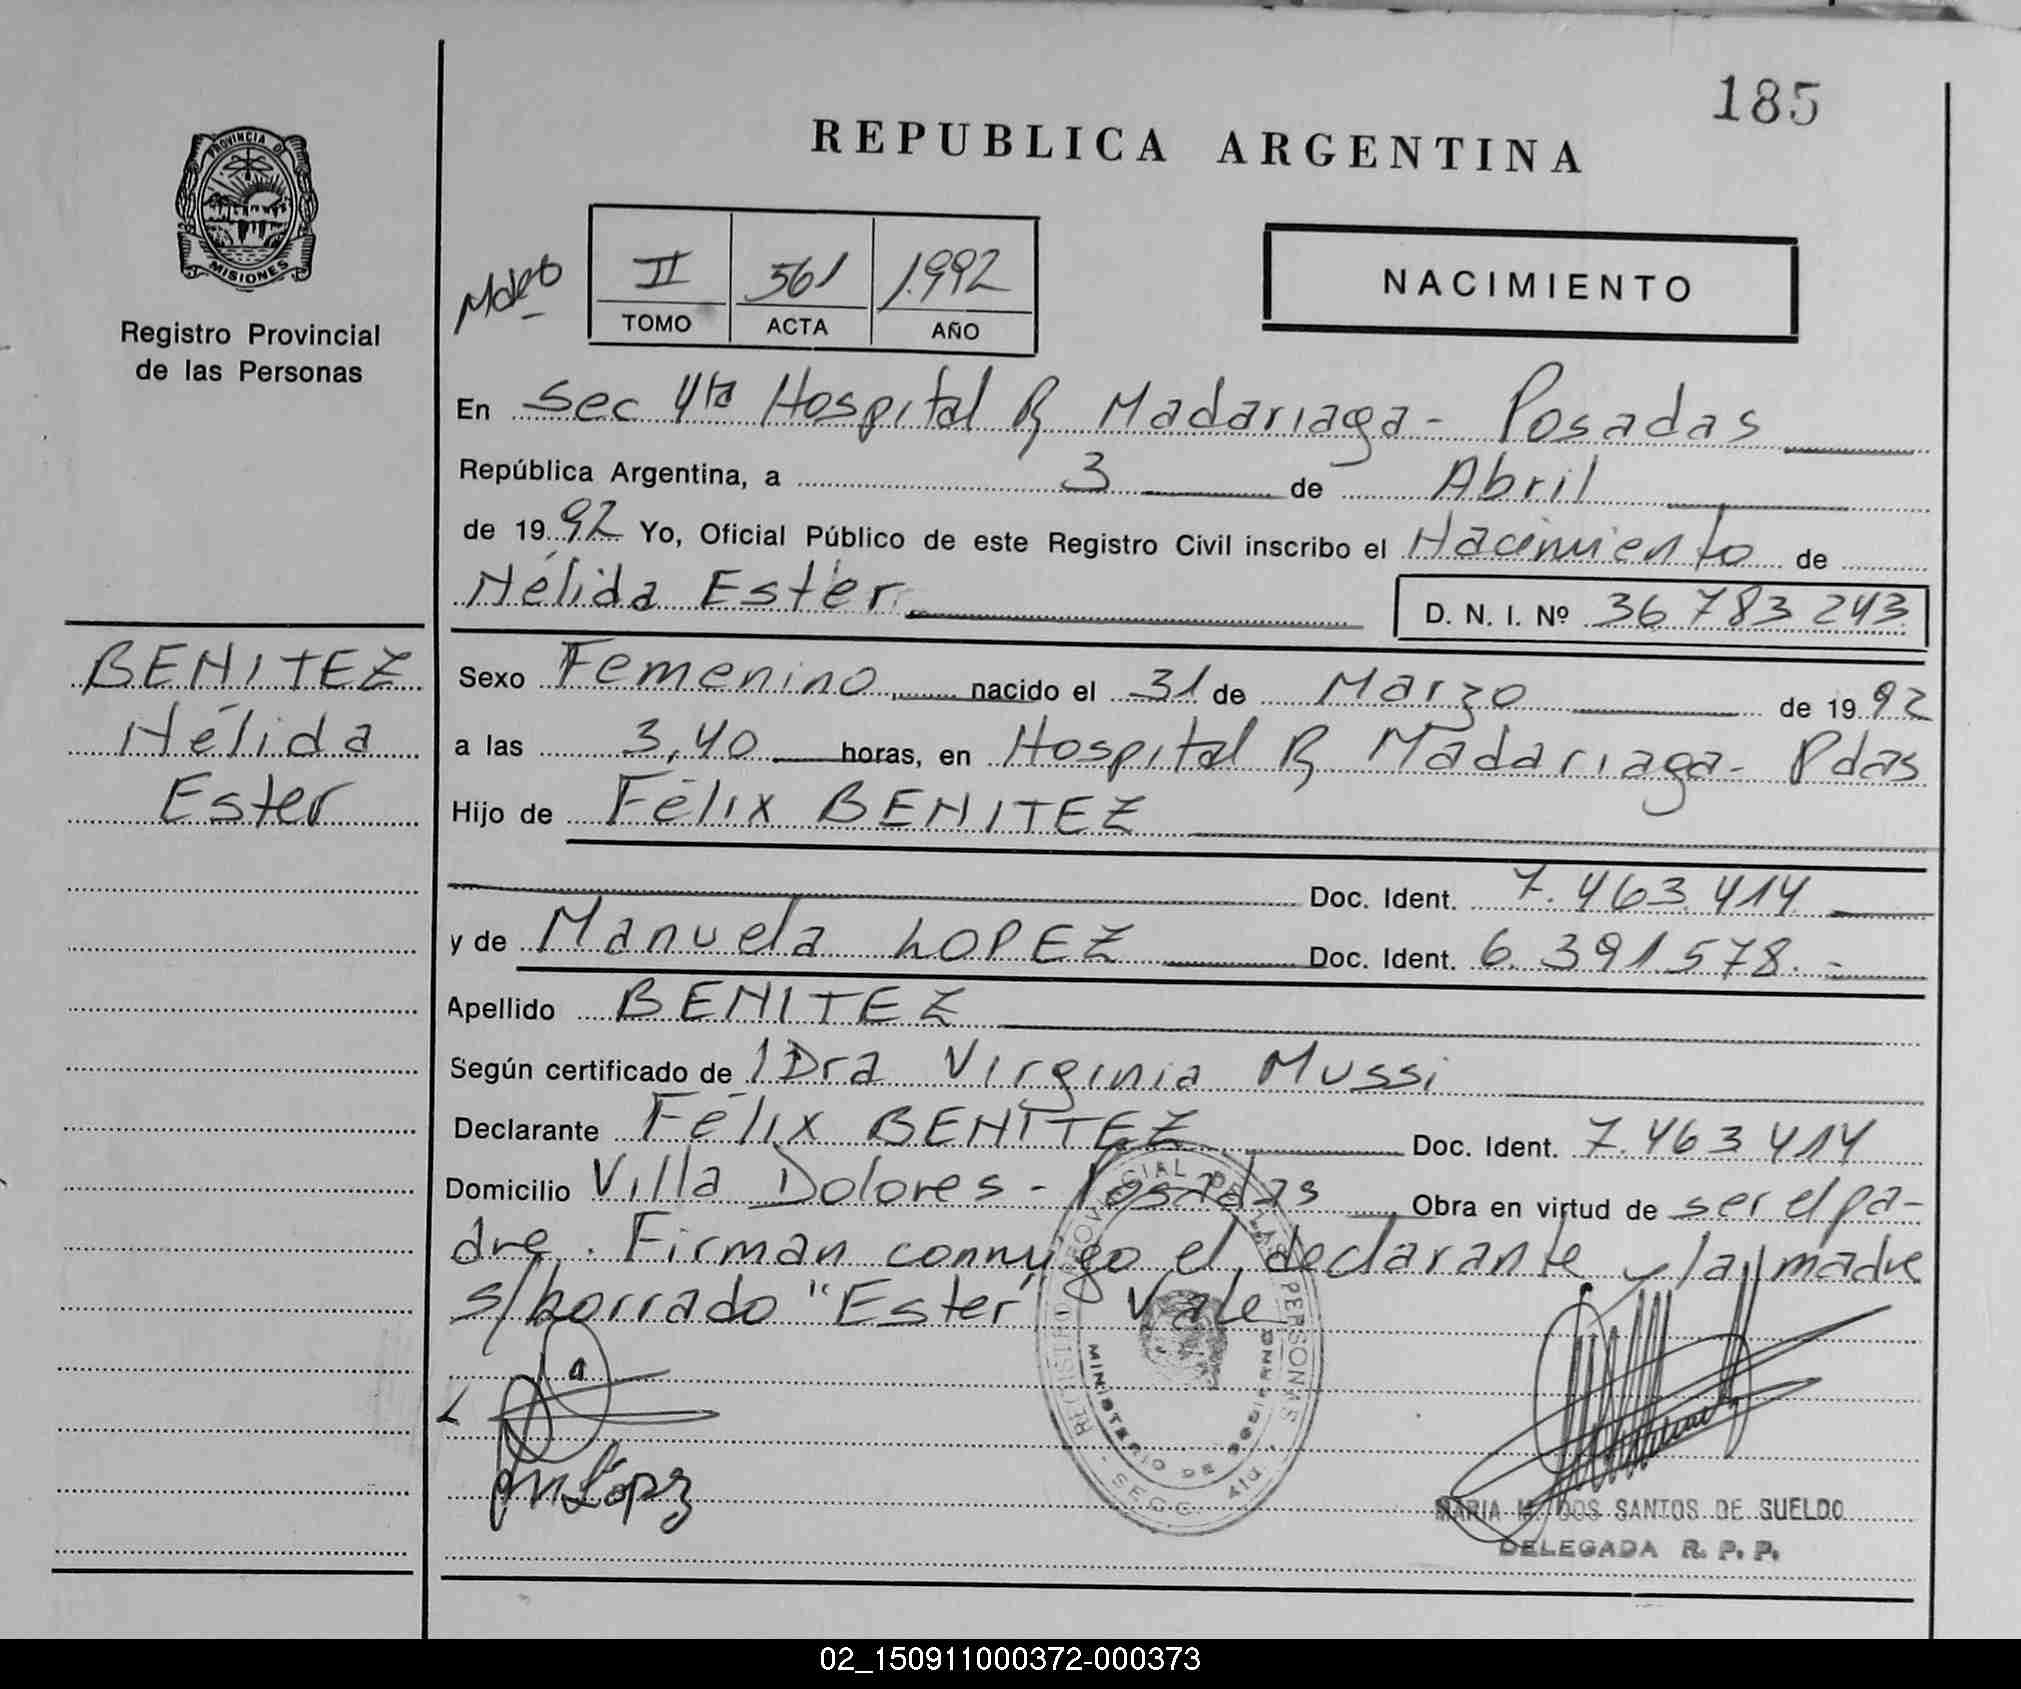 185
REPUBLICA ARGENTINA
PROVINCIA DE
MISIONES
Registro Provincial
de las Personas
II 561 1.992
TOMO ACTA AÑO
NACIMIENTO
En Sec 4ta Hospital R Madariaga - Posadas
República Argentina, a 3 de Abril
de 1992 Yo, Oficial Público de este Registro Civil inscribo el Nacimiento de
Nélida Ester D. N. I. Nº 36 783 243
BENITEZ
Nélida
Ester
Sexo Femenino nacido el 31 de Marzo de 1992
a las 3,40 horas, en Hospital R Madariaga - Pdas
Hijo de Félix BENITEZ
Doc. Ident. 7.463.414
y de Manuela LOPEZ Doc. Ident. 6.391.578.-
Apellido BENITEZ
Según certificado de l Dra Virginia Mussi
Declarante Félix BENITEZ Doc. Ident. 7.463 414
Domicilio Villa Dolores - Posadas Obra en virtud de ser el pa-
dre. Firman conmigo el declarante y la madre
s/borrado "Ester" Vale
REGISTRO PROVINCIAL DE LAS PERSONAS
MINISTERIO DE GOBIERNO
SECC. 4ta.
López
MARIA M. DOS SANTOS DE SUELDO
DELEGADA R. P. P.
02_150911000372-000373